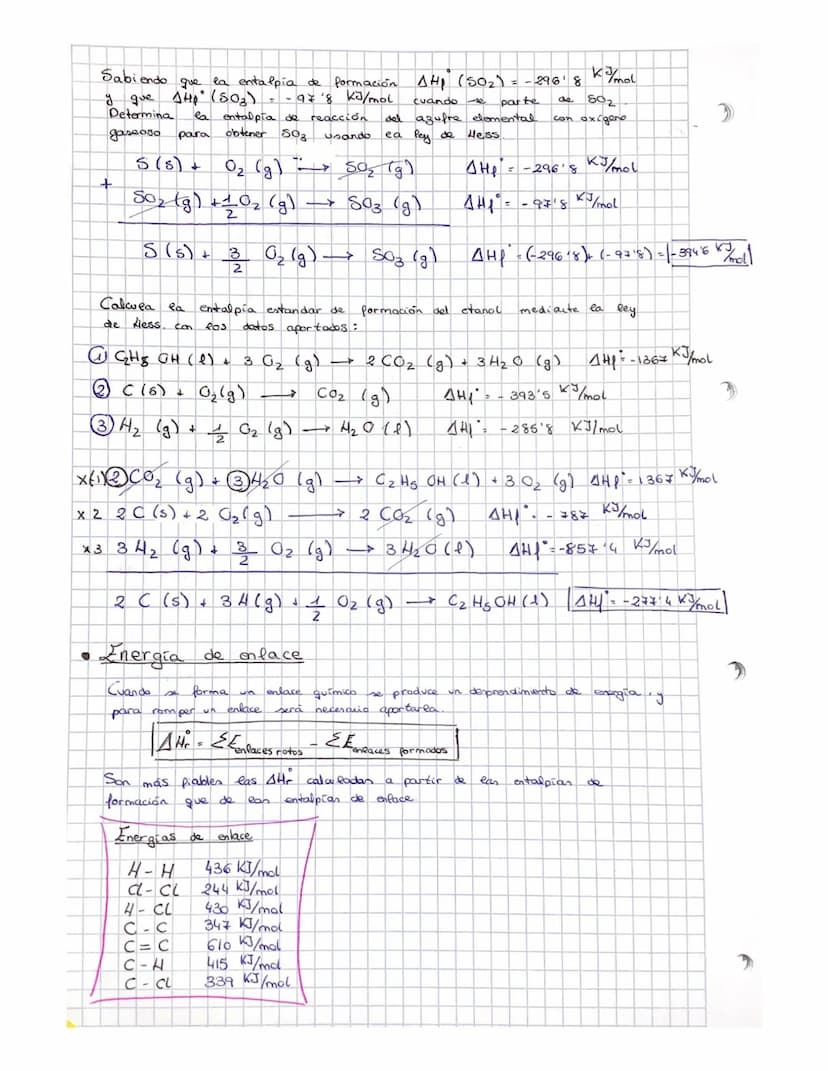 Sabiendo que la entalpía de formación ΔHf° (SO2) = -296'8 KJ/mol
y que ΔHf° (SO3) = -97'8 KJ/mol cuando se parte de SO2.
Determina la entalpía de reacción del azufre elemental con oxígeno
gaseoso para obtener SO3 usando la ley de Hess.
S(s) + O2 (g) → SO2 (g) ΔHf° = -296'8 KJ/mol
+ SO2 (g) + 1/2 O2 (g) → SO3 (g) ΔHf° = -97'8 KJ/mol
S(s) + 3/2 O2(g) → SO3 (g) ΔHf° = (-296'8) + (-97'8) = -394'6 KJ/mol
Calcula la entalpía estandar de formación del etanol mediante la ley
de Hess. con los datos aportados:
① C2H5 OH (l) + 3 O2 (g) → 2 CO2 (g) + 3 H2O (g) ΔHf° = -1367 KJ/mol
② C(s) + O2(g) → CO2 (g) ΔHf° = -393'5 KJ/mol
③ H2 (g) + 1/2 O2 (g) → H2O (l) ΔHf° = -285'8 KJ/mol
x(-1) ② CO2 (g) + ③ H2O (g) → C2H5 OH (l) + 3 O2 (g) ΔHf° = 1367 KJ/mol
x 2 2 C(s) + 2 O2(g) → 2 CO2 (g) ΔHf° = -787 KJ/mol
x3 3 H2 (g) + 3/2 O2 (g) → 3 H2O (l) ΔHf° = -857'4 KJ/mol
2 C (s) + 3 H(g) + 1/2 O2 (g) → C2H5OH (l) ΔHf° = -277'4 KJ/mol
• Energía de enlace
Cuando se forma un enlace químico se produce un desprendimiento de energía, y
para romper un enlace será necesario aportarla.
ΔHr° = ΣE enlaces rotos - ΣE enlaces formados
Son más fiables las ΔHr° calculadan a partir de las entalpías de
formación que de las entalpías de enlace
Energías de enlace
H - H 436 KJ/mol
Cl - Cl 244 KJ/mol
H - Cl 430 KJ/mol
C - C 347 KJ/mol
C = C 610 KJ/mol
C - H 415 KJ/mol
C - Cl 339 KJ/mol